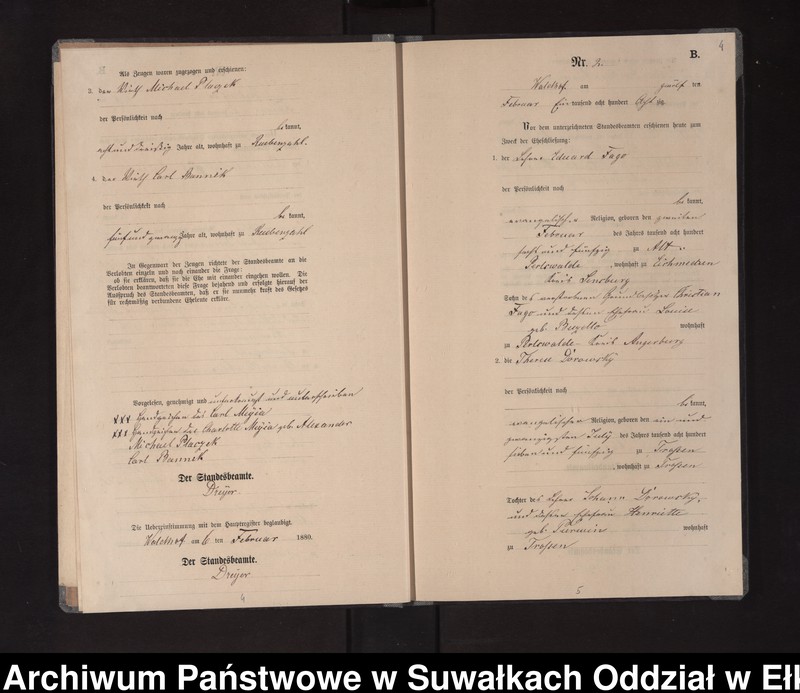 Als Zeugen waren zugezogen und erschienen:
3. der Wirth Michael Placzek
der Persönlichkeit nach
be kannt,
acht und dreißig Jahre alt, wohnhaft zu Ruebenzahl.
4. der Wirth Carl Bannik
der Persönlichkeit nach
be kannt,
fünf und zwanzig Jahre alt, wohnhaft zu Ruebenzahl
In Gegenwart der Zeugen richtete der Standesbeamte an die
Verlobten einzeln und nach einander die Frage:
ob sie erklären, daß sie die Ehe mit einander eingehen wollen. Die
Verlobten beantworteten diese Frage bejahend und erfolgte hierauf der
Ausspruch des Standesbeamten, daß er sie nunmehr kraft des Gesetzes
für rechtmäßig verbundene Eheleute erkläre.
Vorgelesen, genehmigt und unterkreuzt und unterschrieben
XXX Handzeichen des Carl Meyia
XXX Handzeichen der Charlotte Meyia geb. Alexander
Michael Placzek
Carl Bannik
Der Standesbeamte.
Dreyer.
Die Uebereinstimmung mit dem Hauptregister beglaubigt.
Waldhof am 6 ten Februar 1880.
Der Standesbeamte.
Dreyer
4
4
B.
Nr. 2.
Waldhof am ten
Februar Ein tausend acht hundert Acht zig
Vor dem unterzeichneten Standesbeamten erschienen heute zum
Zweck der Eheschließung:
1. der Lehrer Eduard Fago
der Persönlichkeit nach
be kannt,
evangelischer Religion, geboren den zweiten
Februar des Jahres tausend acht hundert
sechs und fünfzig zu Alt
Perlswalde, wohnhaft zu Eichmedien
Kreis Sensburg
Sohn des verstorbenen Grundbesitzer Christian
Fago und dessen Ehefrau Louise
geb. wohnhaft
zu Perlswalde Kreis Angerburg
2. die Therese Dorowsky
der Persönlichkeit nach
be kannt,
evangelischer Religion, geboren den ein und
zwanzigsten July des Jahres tausend acht hundert
sieben und fünfzig zu Trossen
, wohnhaft zu Trossen
Tochter des Lehrer Johann Dorowsky,
und dessen Ehefrau Henriette
geb. wohnhaft
zu Trossen
5
Archiwum Państwowe w Suwałkach Oddział w Eł